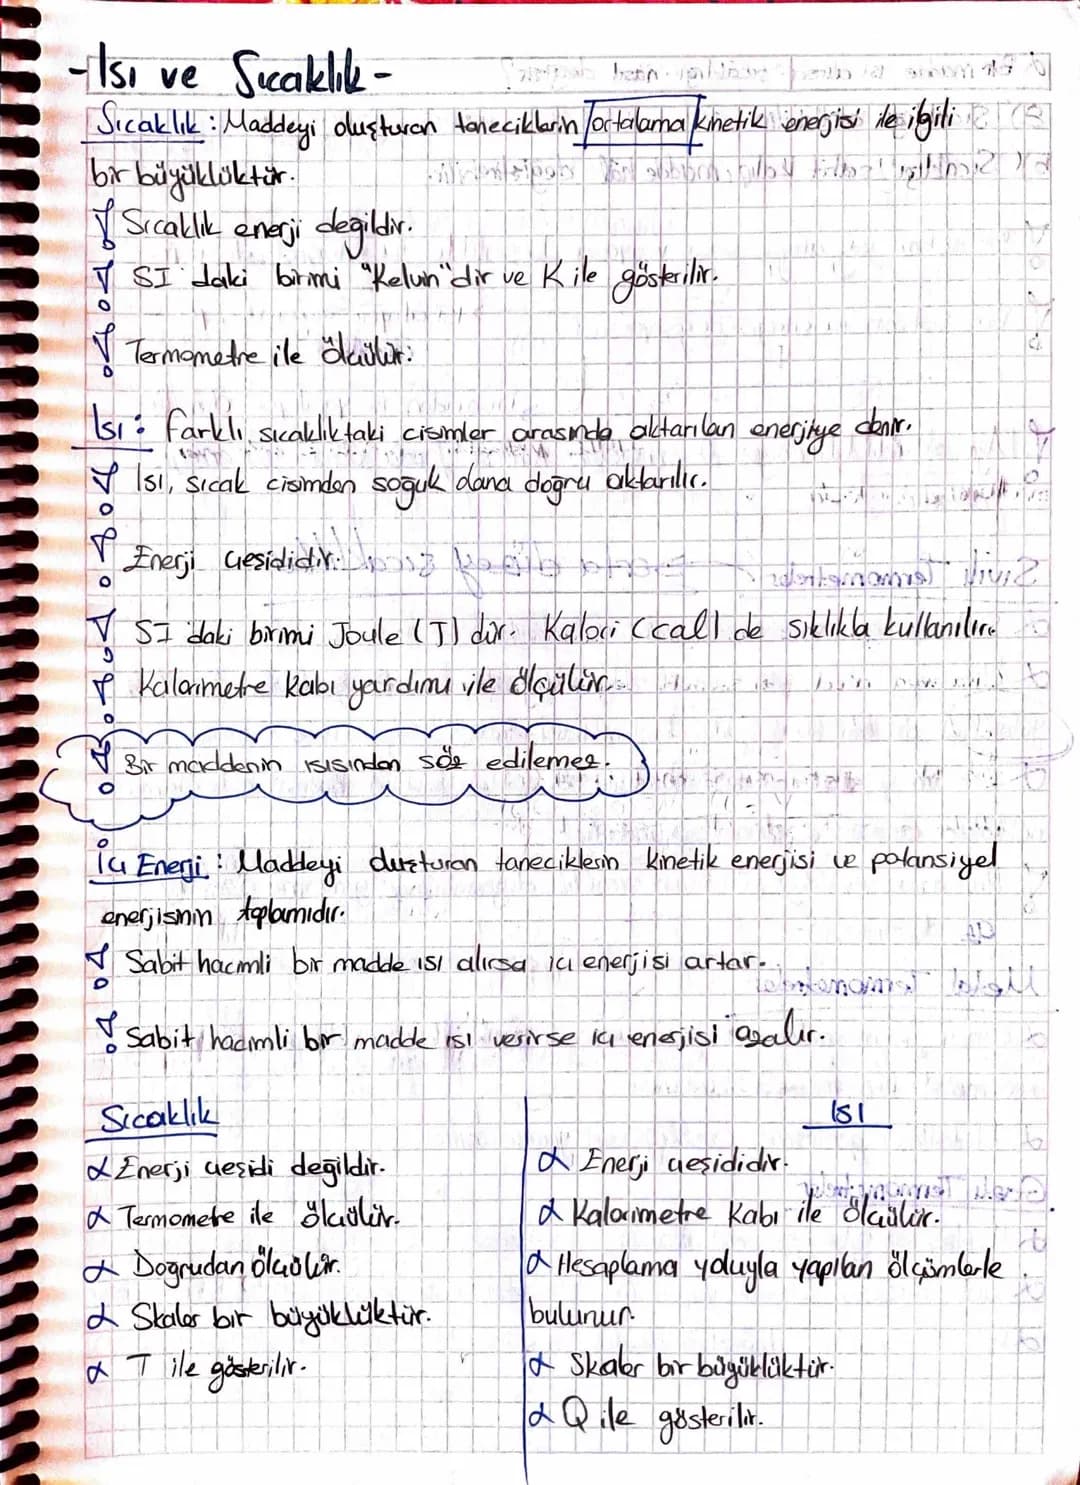 -Isı ve Sıcaklık-
Sıcaklık: Maddeyi oluşturan taneciklerin ortalama kinetik enerjisi ile ilgili
bir büyüklüktür.
! Sıcaklık enerji değildir.
! SI'daki birimi "Kelvin"dir ve K ile gösterilir.
! Termometre ile ölçülür.
Isı: farklı sıcaklıktaki cisimler arasında aktarılan enerjiye denir.
! Isı, sıcak cisimden soğuk olana doğru aktarılır.
! Enerji çeşididir.
! SI'daki birimi Joule (J) dür. Kalori (cal) de sıklıkla kullanılır.
! Kalorimetre kabı yardımı ile ölçülür.
! Bir maddenin ısısından söz edilemez.
İç Enerji: Maddeyi oluşturan taneciklerin kinetik enerjisi ve potansiyel
enerjisinin toplamıdır.
! Sabit hacimli bir madde ısı alırsa iç enerjisi artar.
! Sabit hacimli bir madde ısı verirse iç enerjisi azalır.
Sıcaklık
α Enerji çeşidi değildir.
α Termometre ile ölçülür.
α Doğrudan ölçülür.
α Skaler bir büyüklüktür.
α T ile gösterilir.
Isı
α Enerji çeşididir.
α Kalorimetre Kabı ile ölçülür.
α Hesaplama yoluyla yapılan ölçümlerle
bulunur.
α Skaler bir büyüklüktür.
α Q ile gösterilir.